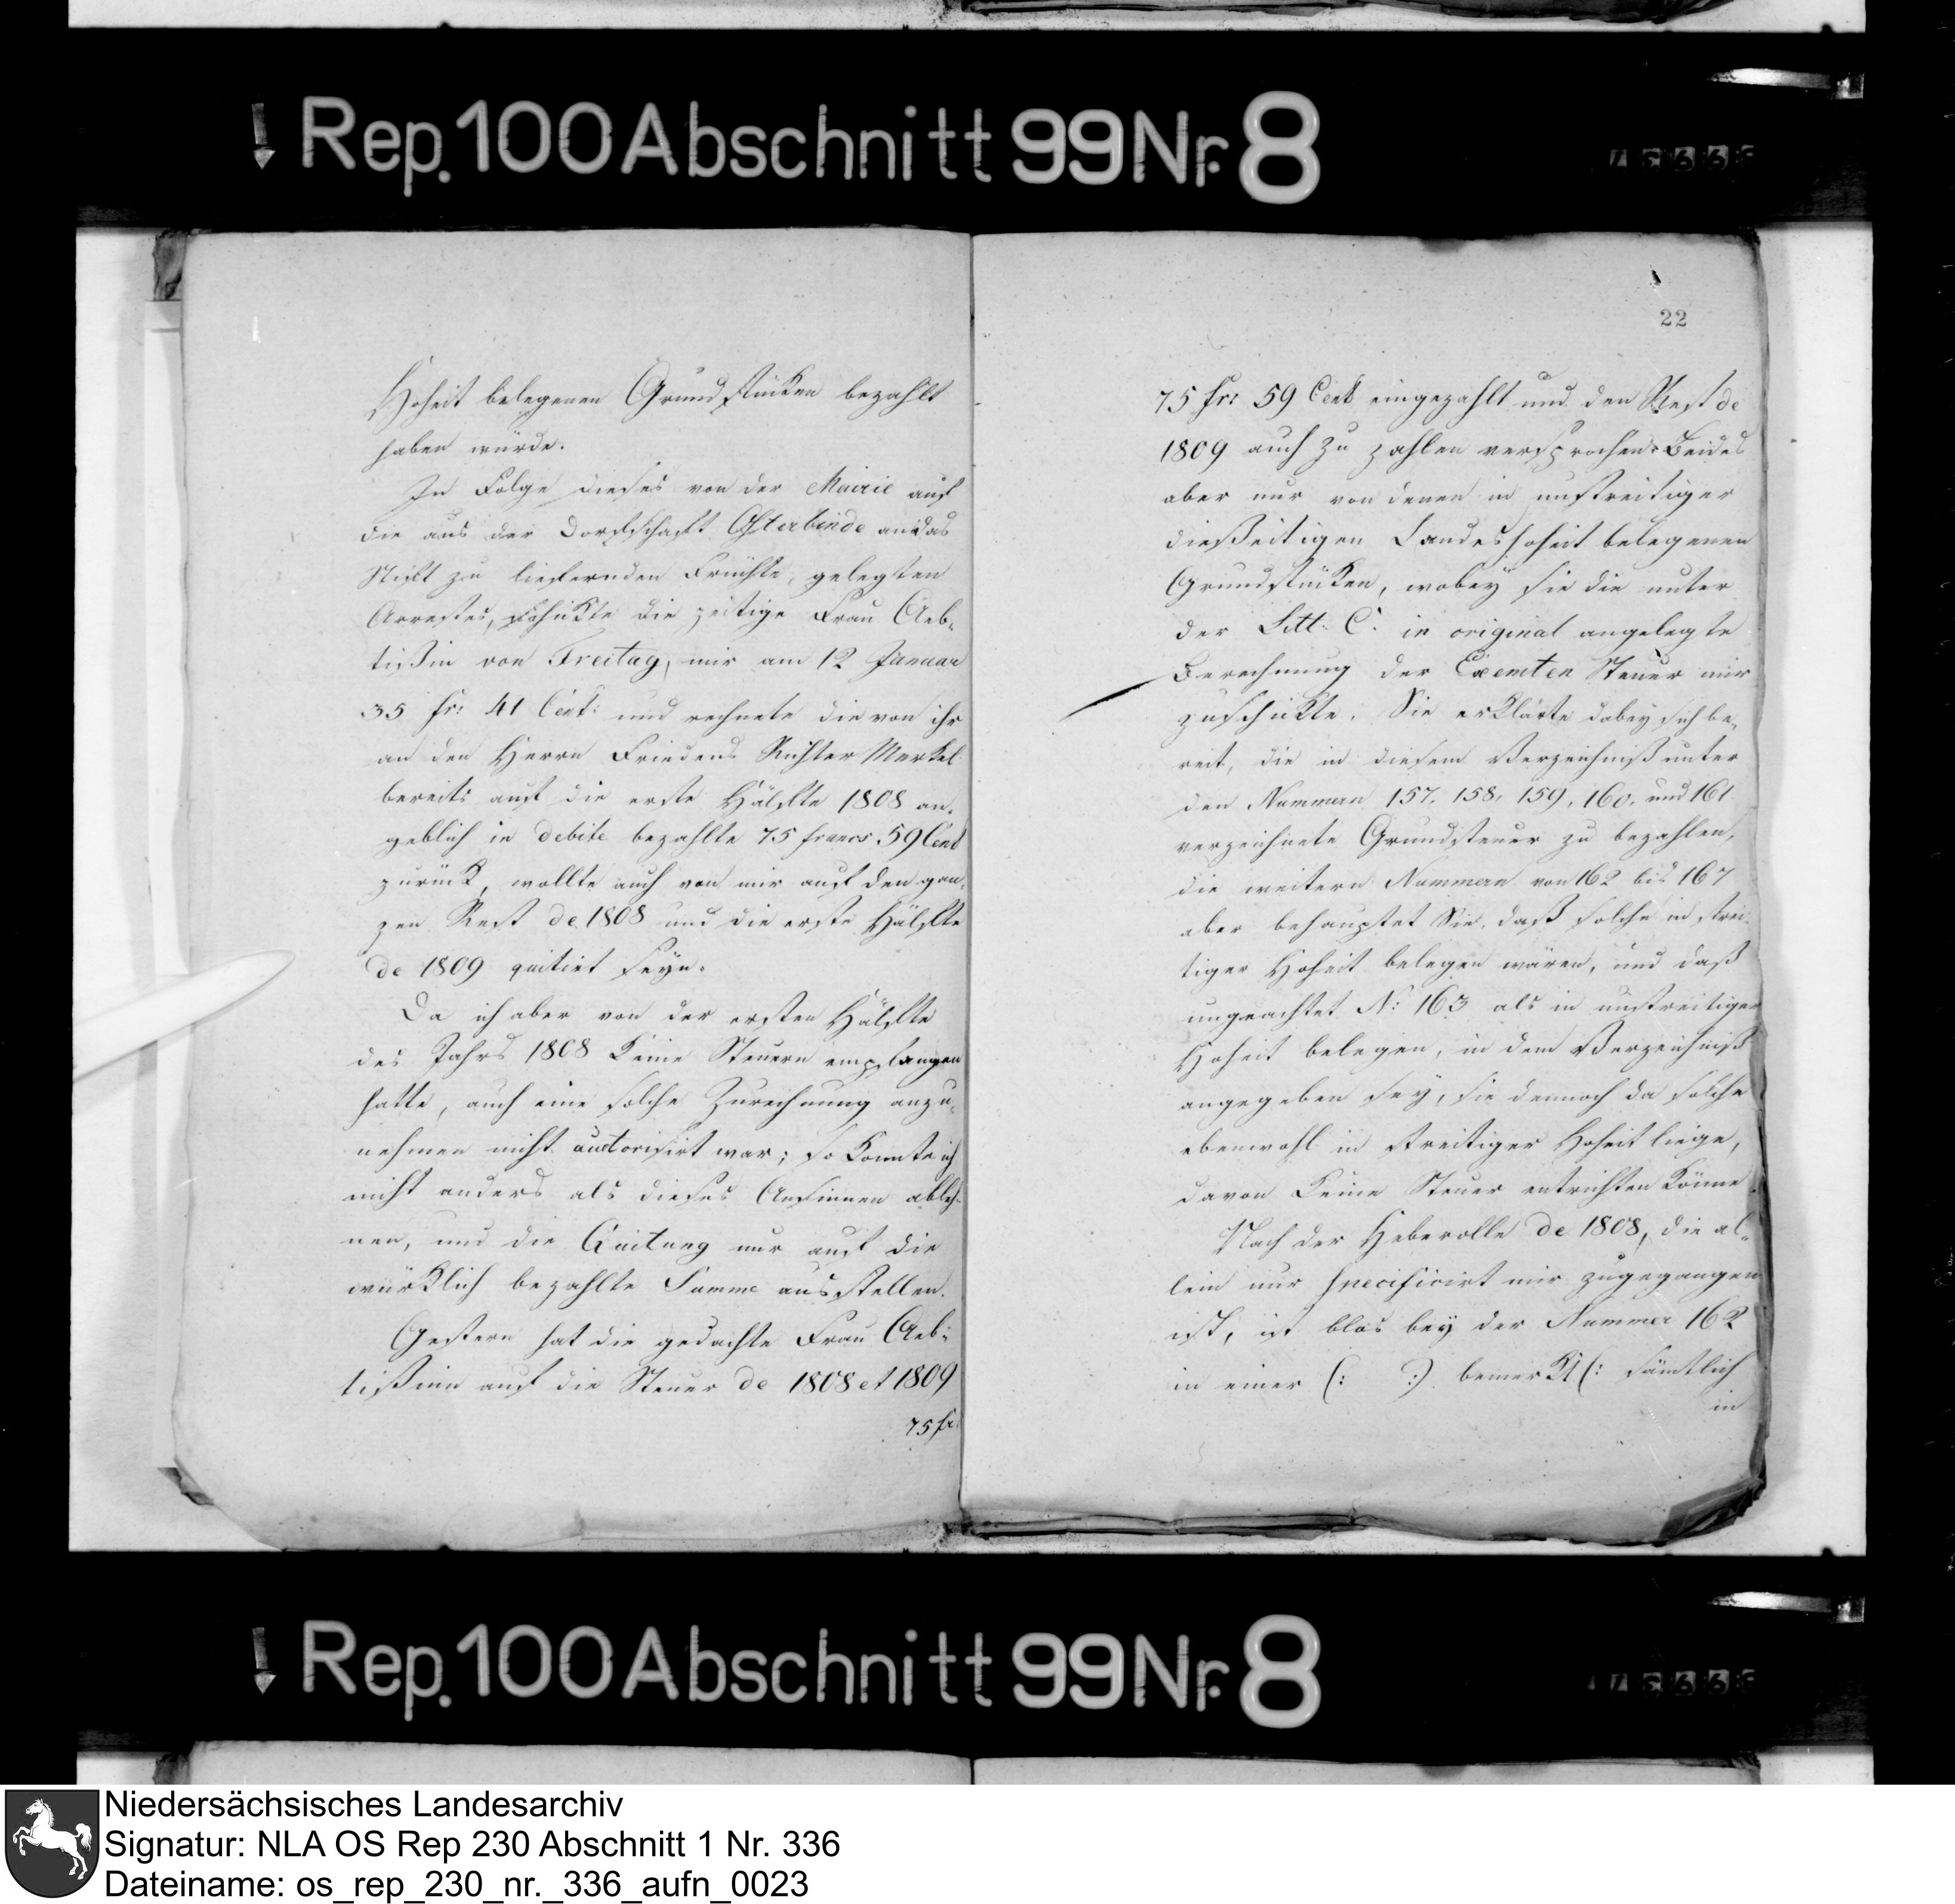 Rep. 100 Abschnitt 99 Nr. 8
Hoheit belegenen Grundstücken bezahlt
haben würde.
In Folge dieses von der Mairie auf
die aus der Dorfschaft Osterbinde an das
Stift zu liefernden Früchte, gelegten
Arrestes, schickte die zeitige Frau Aeb-
tißin von Freitag, mir am 12 Januar
35 fr: 41 Cent: und rechnete die von ihr
an den Herrn Friedens Richter Merkel
bereits auf die erste Hälfte 1808 an-
geblich in debite bezahlte 75 francs 59 Cent
zurück, wollte auch von mir auf den gan-
zen Rest de 1808 und die erste Hälfte
de 1809 quitirt seyn.
Da ich aber von der ersten Hälfte
des Jahrs 1808 keine Steuern empfangen
hatte, auch eine solche Zurechnung anzu-
nehmen nicht autorisirt war; so konnte ich
nicht anders als dieses Ansinnen ableh-
nen, und die Quitung nur auf die
würklich bezahlte Summe ausstellen.
Gestern hat die gedachte Frau Aeb-
tißinn auf die Steuer de 1808 et 1809
75 fr:
22
75 fr: 59 Cent eingezahlt und den Rest de
1809 auch zu zahlen versprochen. Beides
aber nur von denen in unstreitiger
dießeitigen Landeshoheit belegenen
Grundstücken, wobey sie die unter
der Litt: C. in original angelegte
Berechnung der Exemten Steuer mir
zuschickte. Sie erklärte dabey sich be-
reit, die in diesem Verzeichniß unter
den Nummern 157, 158, 159, 160, und 161
verzeichnete Grundsteuer zu bezahlen,
die weitern Nummern von 162 bis 167
aber behauptet Sie, daß solche in strei-
tiger Hoheit belegen wären, und daß
ungeachtet N: 163 als in unstreitiger
Hoheit belegen, in dem Verzeichniß
angegeben sey, sie dennoch da solche
ebenwohl in streitiger Hoheit liege,
davon keine Steuer entrichten könne
Nach der Heberolle de 1808, die al-
lein nur specificirt mir zugegangen
ist, ist blos bey der Nummer 162
in einer (: :) bemerkt (: sämtlich
in
Rep. 100 Abschnitt 99 Nr. 8
Niedersächsisches Landesarchiv
Signatur: NLA OS Rep 230 Abschnitt 1 Nr. 336
Dateiname: os_rep_230_nr._336_aufn_0023